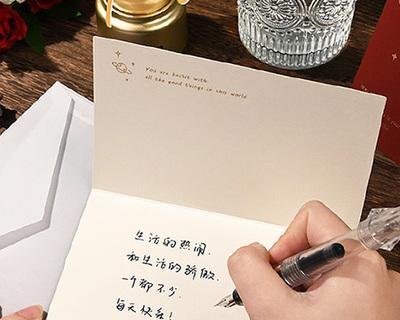 You are bucket with
all the good things in this world
生活的热闹
和生活的骄傲
一个都不少
每天快乐!